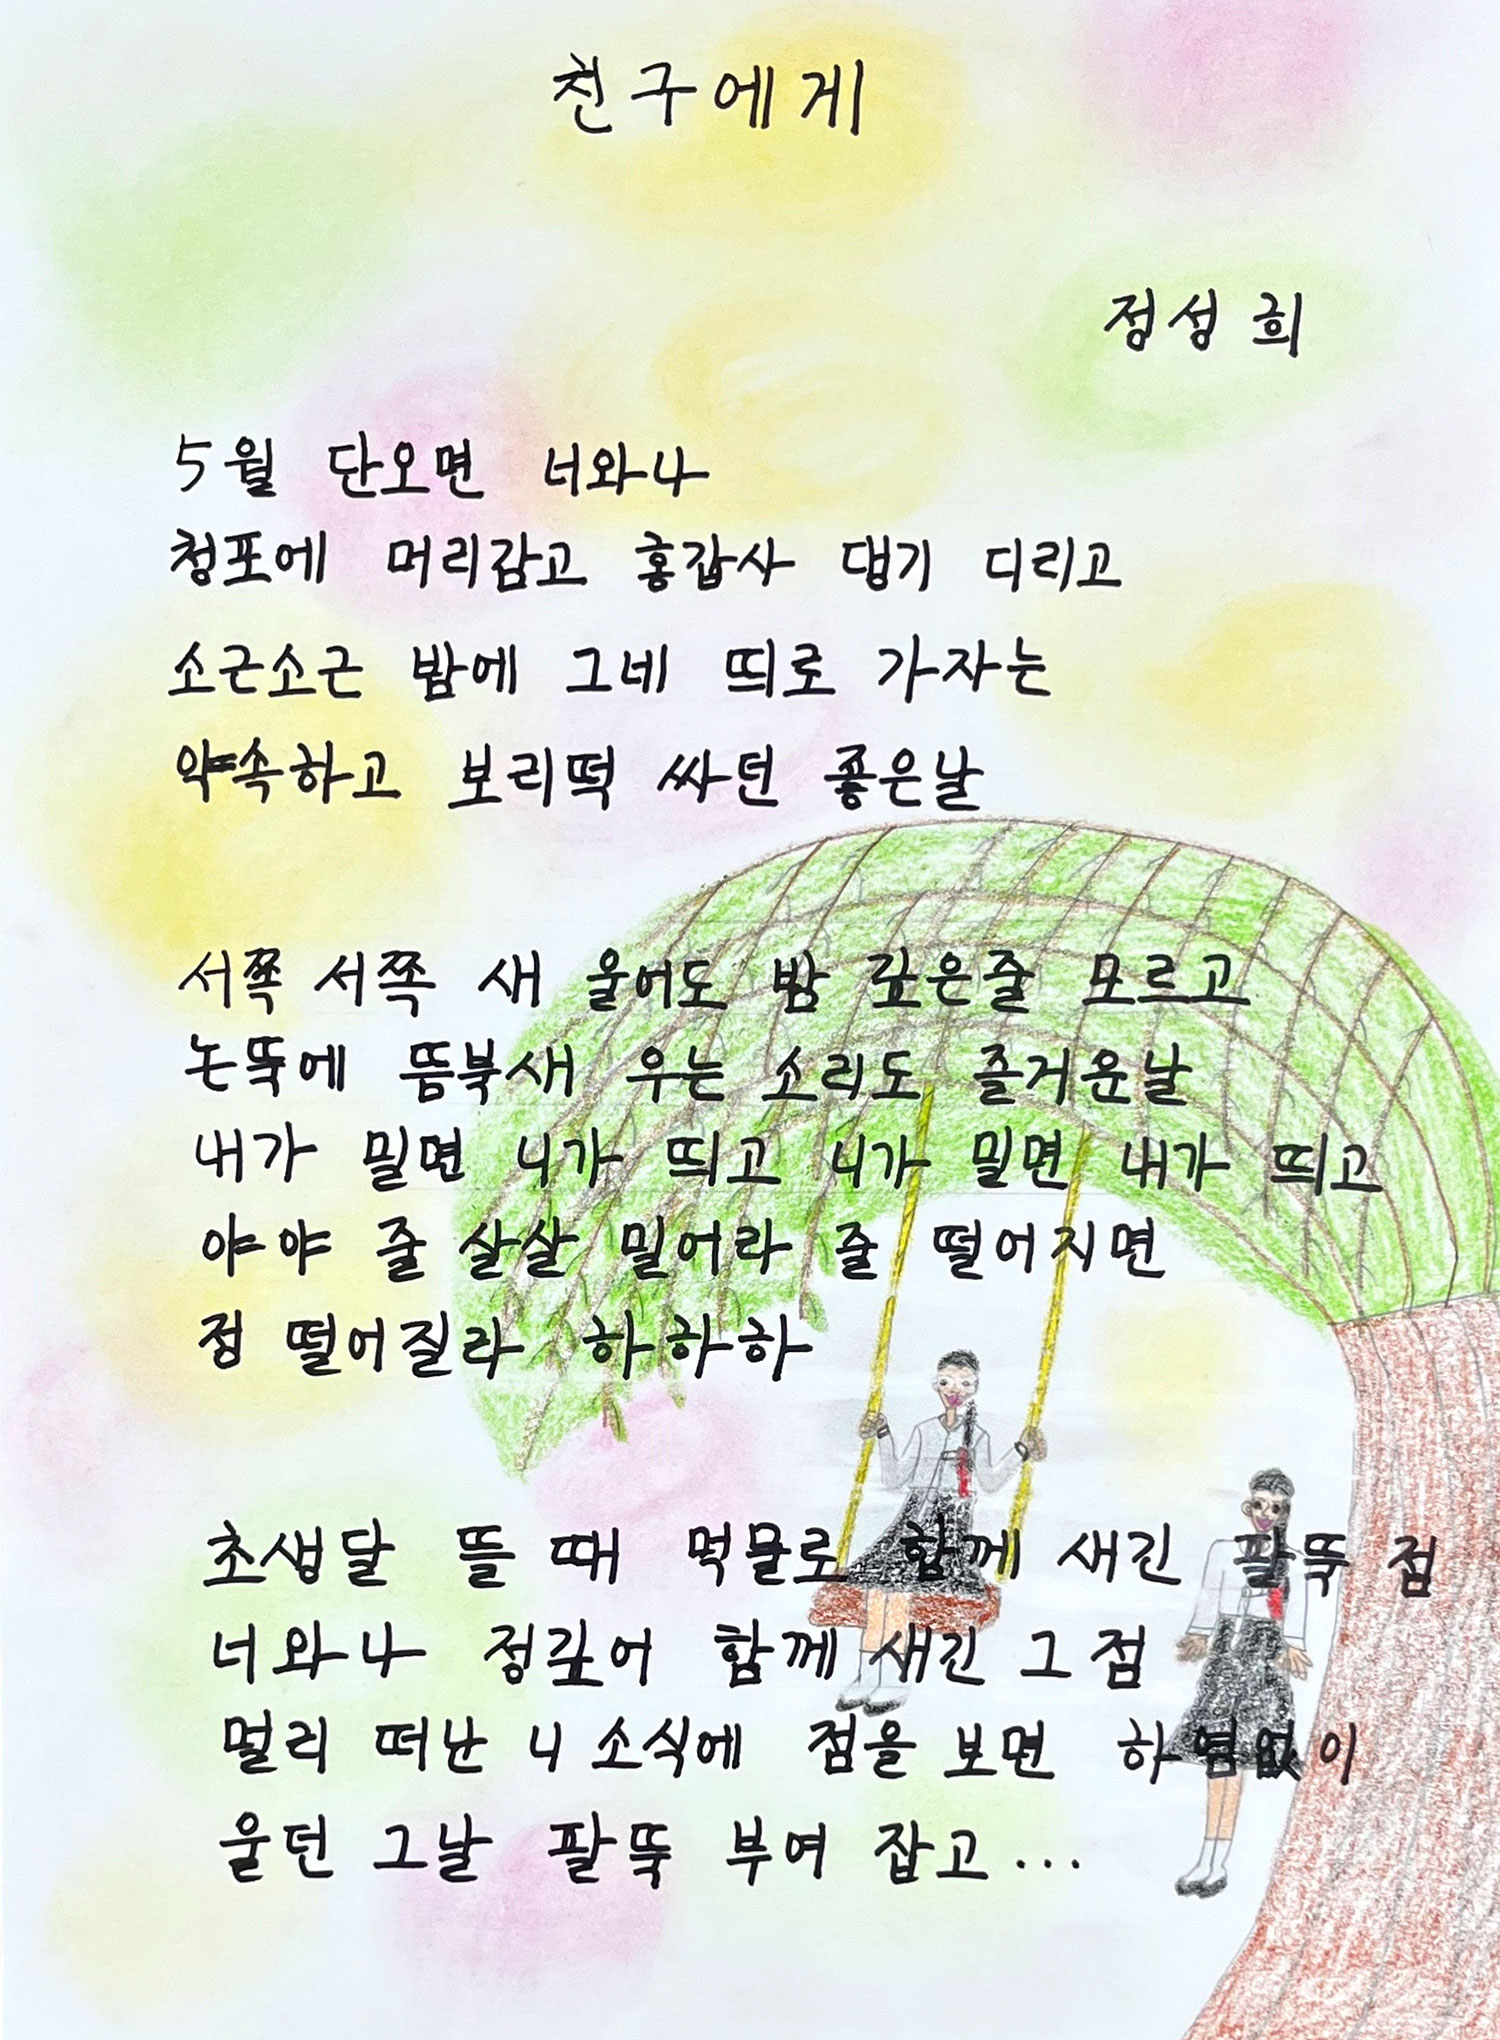 친구에게
정성희
5월 단오면 너와나
청포에 머리감고 홍갑사 댑기 디리고
소근소근 밤에 그네 띄로 가자는
약속하고 보리떡 싸던 좋은날
서쪽 서쪽 새 울어도 밤 깊은줄 모르고
논뚝에 뜸북새 우는 소리도 즐거운날
내가 밀면 니가 띄고 니가 밀면 내가 띄고
야야 줄 살살 밀어라 줄 떨어지면
정 떨어질라 하하하
초생달 뜰 때 먹물로 함께 새긴 팔뚝 점
너와나 정깊어 함께 새긴 그 점
멀리 떠난 니 소식에 점을 보면 하염없이
울던 그날 팔뚝 부여 잡고...